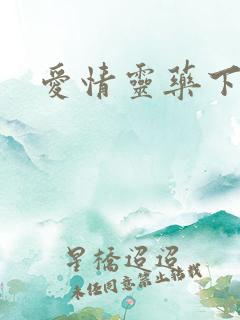 愛情靈藥下
星橋迢迢
未經同意禁止轉載